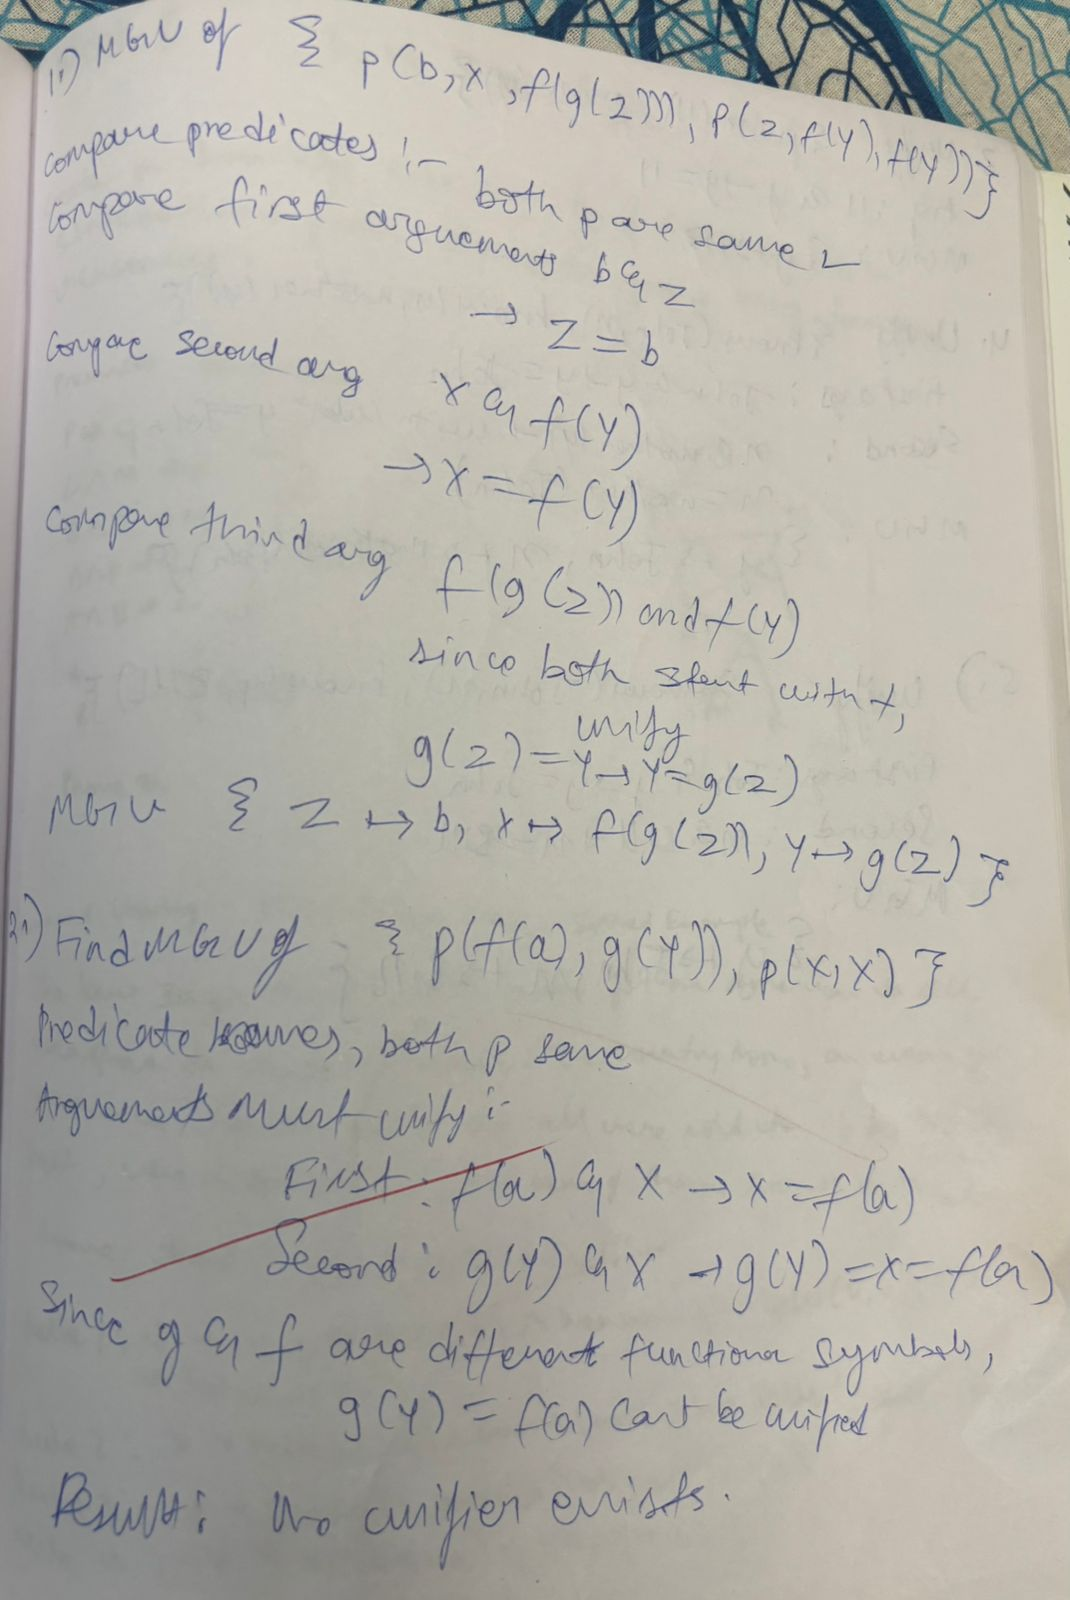 1.) MGU of { p(b, x, f(g(z))), p(z, f(y), f(y)) }
compare predicates :- both p are same
compare first arguements b & z
→ z = b
compare second arg x & f(y)
→ x = f(y)
compare third arg f(g(z)) and f(y)
since both start with f,
unify
g(z) = y → y = g(z)
MGU { z ↦ b, x ↦ f(g(z)), y ↦ g(z) }
2.) Find MGU of { p(f(a), g(y)), p(x, x) }
Predicate names, both p same
Arguements must unify :-
First : f(a) & x → x = f(a)
Second : g(y) & x → g(y) = x = f(a)
Since g & f are different function symbols,
g(y) = f(a) cant be unified
Result : No unifier exists.